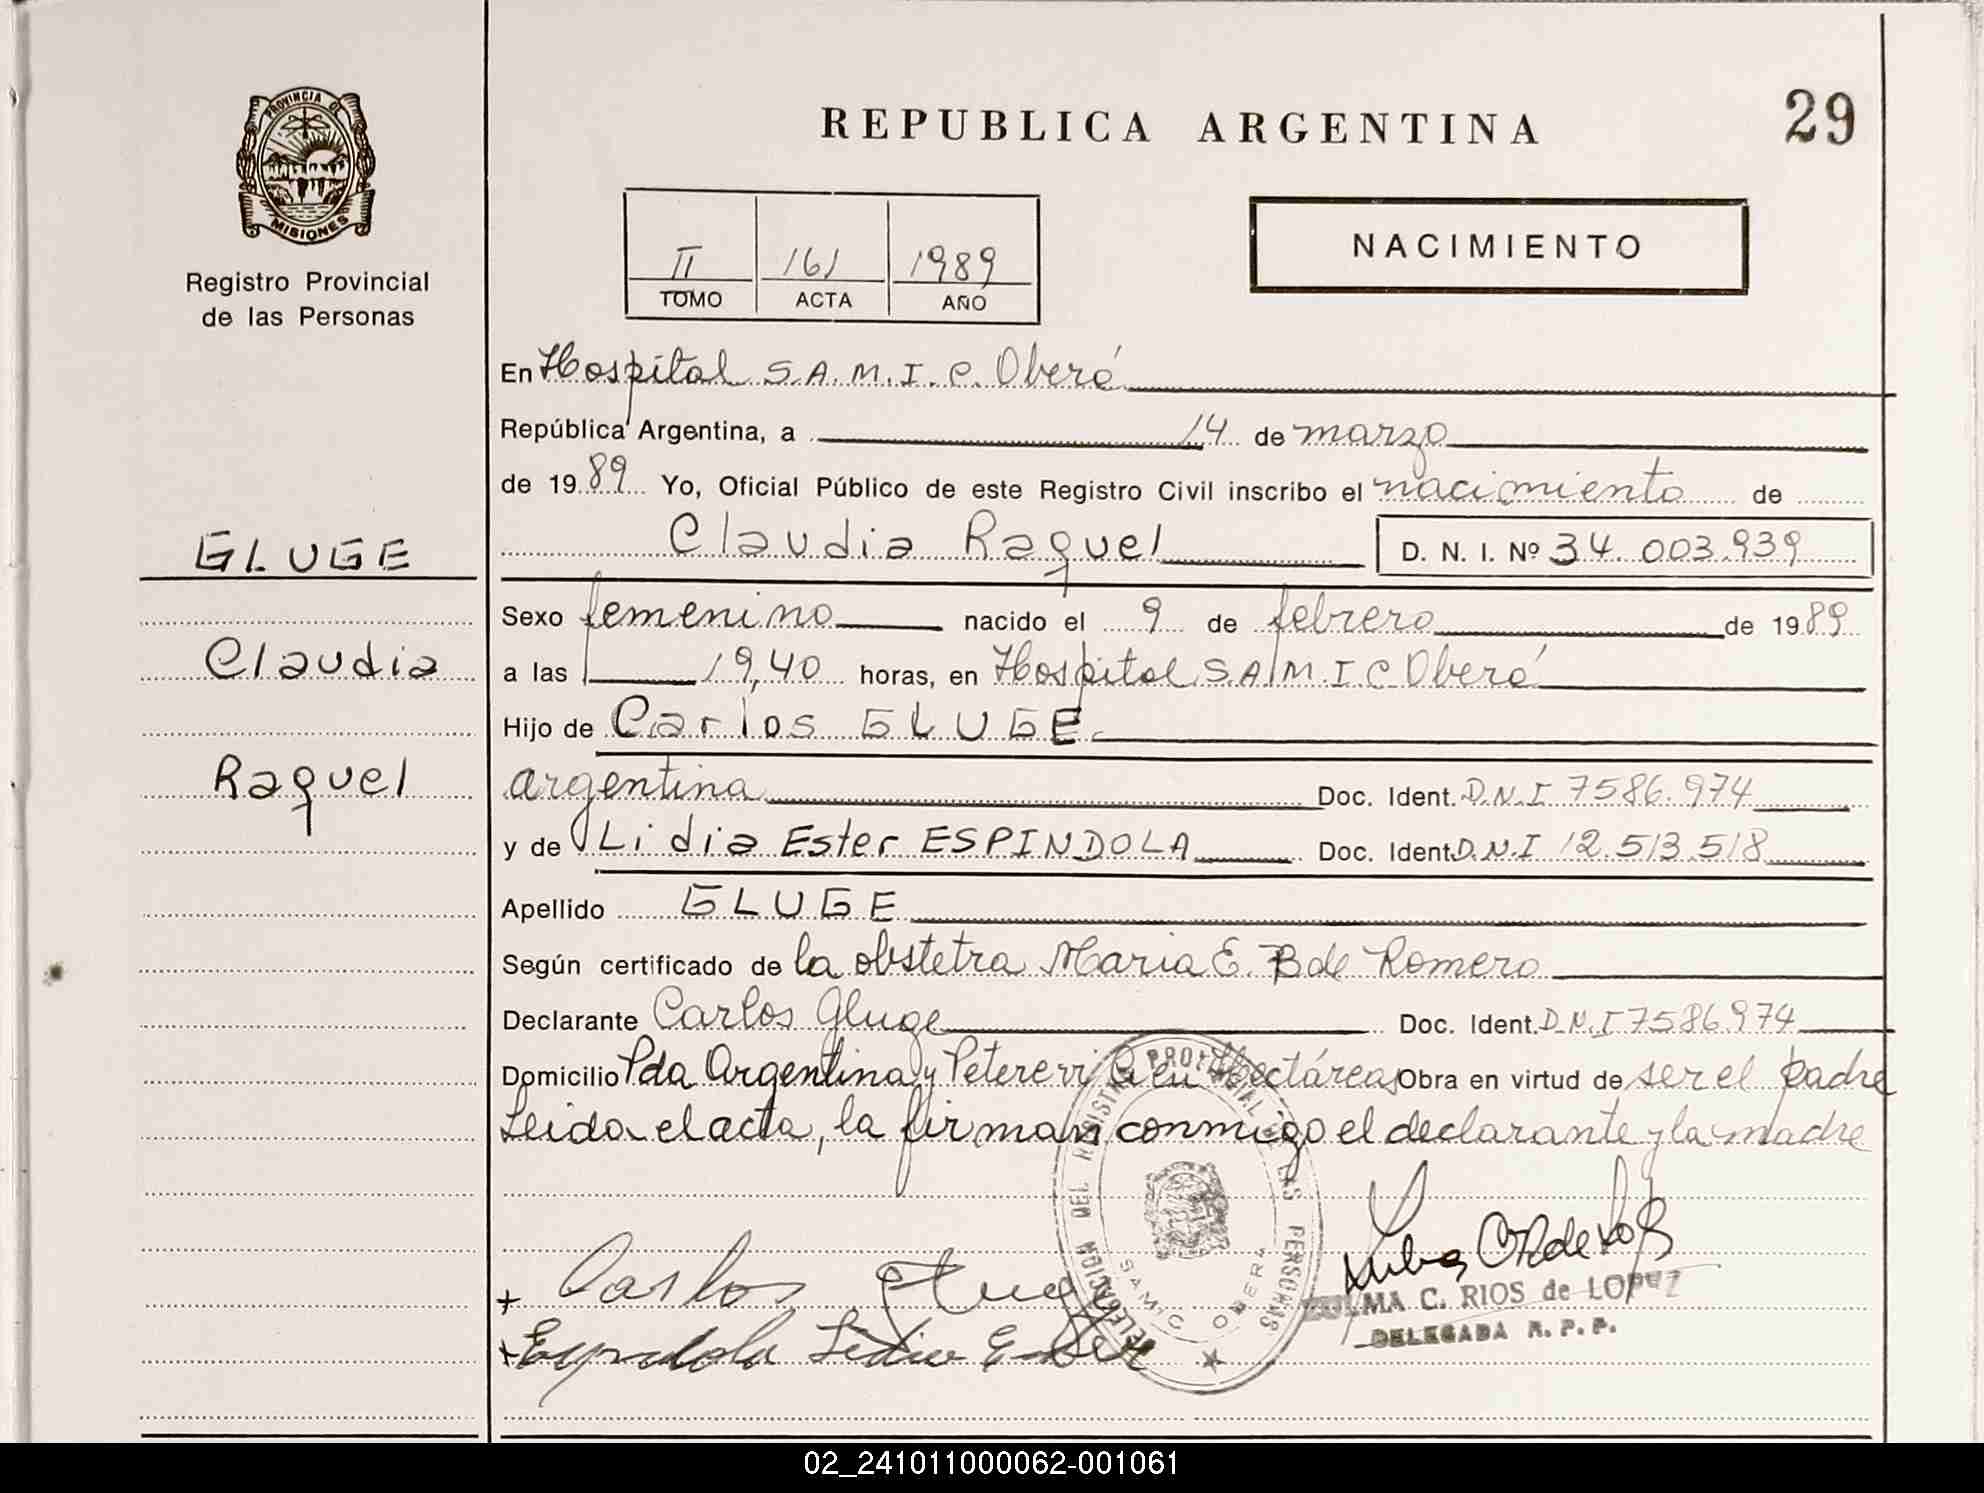 PROVINCIA DE
MISIONES
Registro Provincial
de las Personas
REPUBLICA ARGENTINA
29
II 161 1989
TOMO ACTA AÑO
NACIMIENTO
En Hospital S.A.M.I.C. Oberá
República Argentina, a 14 de marzo
de 1989 Yo, Oficial Público de este Registro Civil inscribo el nacimiento de
Claudia Raquel D. N. I. Nº 34.003.939
GLUGE
Sexo femenino nacido el 9 de febrero de 1989
Claudia
a las 19,40 horas, en Hospital S.A.M.I.C Oberá
Hijo de Carlos GLUGE
Raquel
argentina Doc. Ident. D.N.I 7586.974
y de Lidia Ester ESPINDOLA Doc. Ident. D.N.I 12.513.518
Apellido GLUGE
Según certificado de la obstetra Maria E. B de Romero
Declarante Carlos Gluge Doc. Ident. D.N.I 7586974
Domicilio Pda Argentina y Hectáreas Obra en virtud de ser el padre
Leida el acta, la firman conmigo el declarante y la madre
DELEGACION DEL REGISTRO PROVINCIAL DE LAS PERSONAS
SAMIC OBERA
+ Carlos Gluge
+ Espindola Lidia Ester
ZULMA C. RIOS de LOPEZ
DELEGADA R. P. P.
02_241011000062-001061